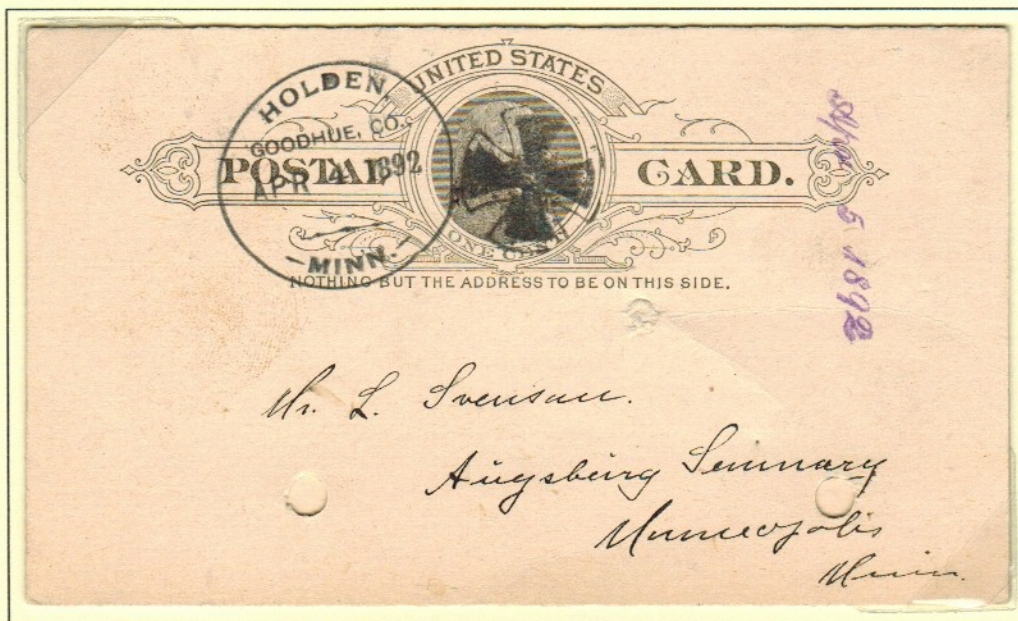 UNITED STATES
POSTAL CARD.
ONE CENT
NOTHING BUT THE ADDRESS TO BE ON THIS SIDE.
HOLDEN
GOODHUE, CO.
APR 4 1892
MINN.
5 1892
Mr. L. Svenson.
Augsburg Seminary
Minneapolis
Minn.